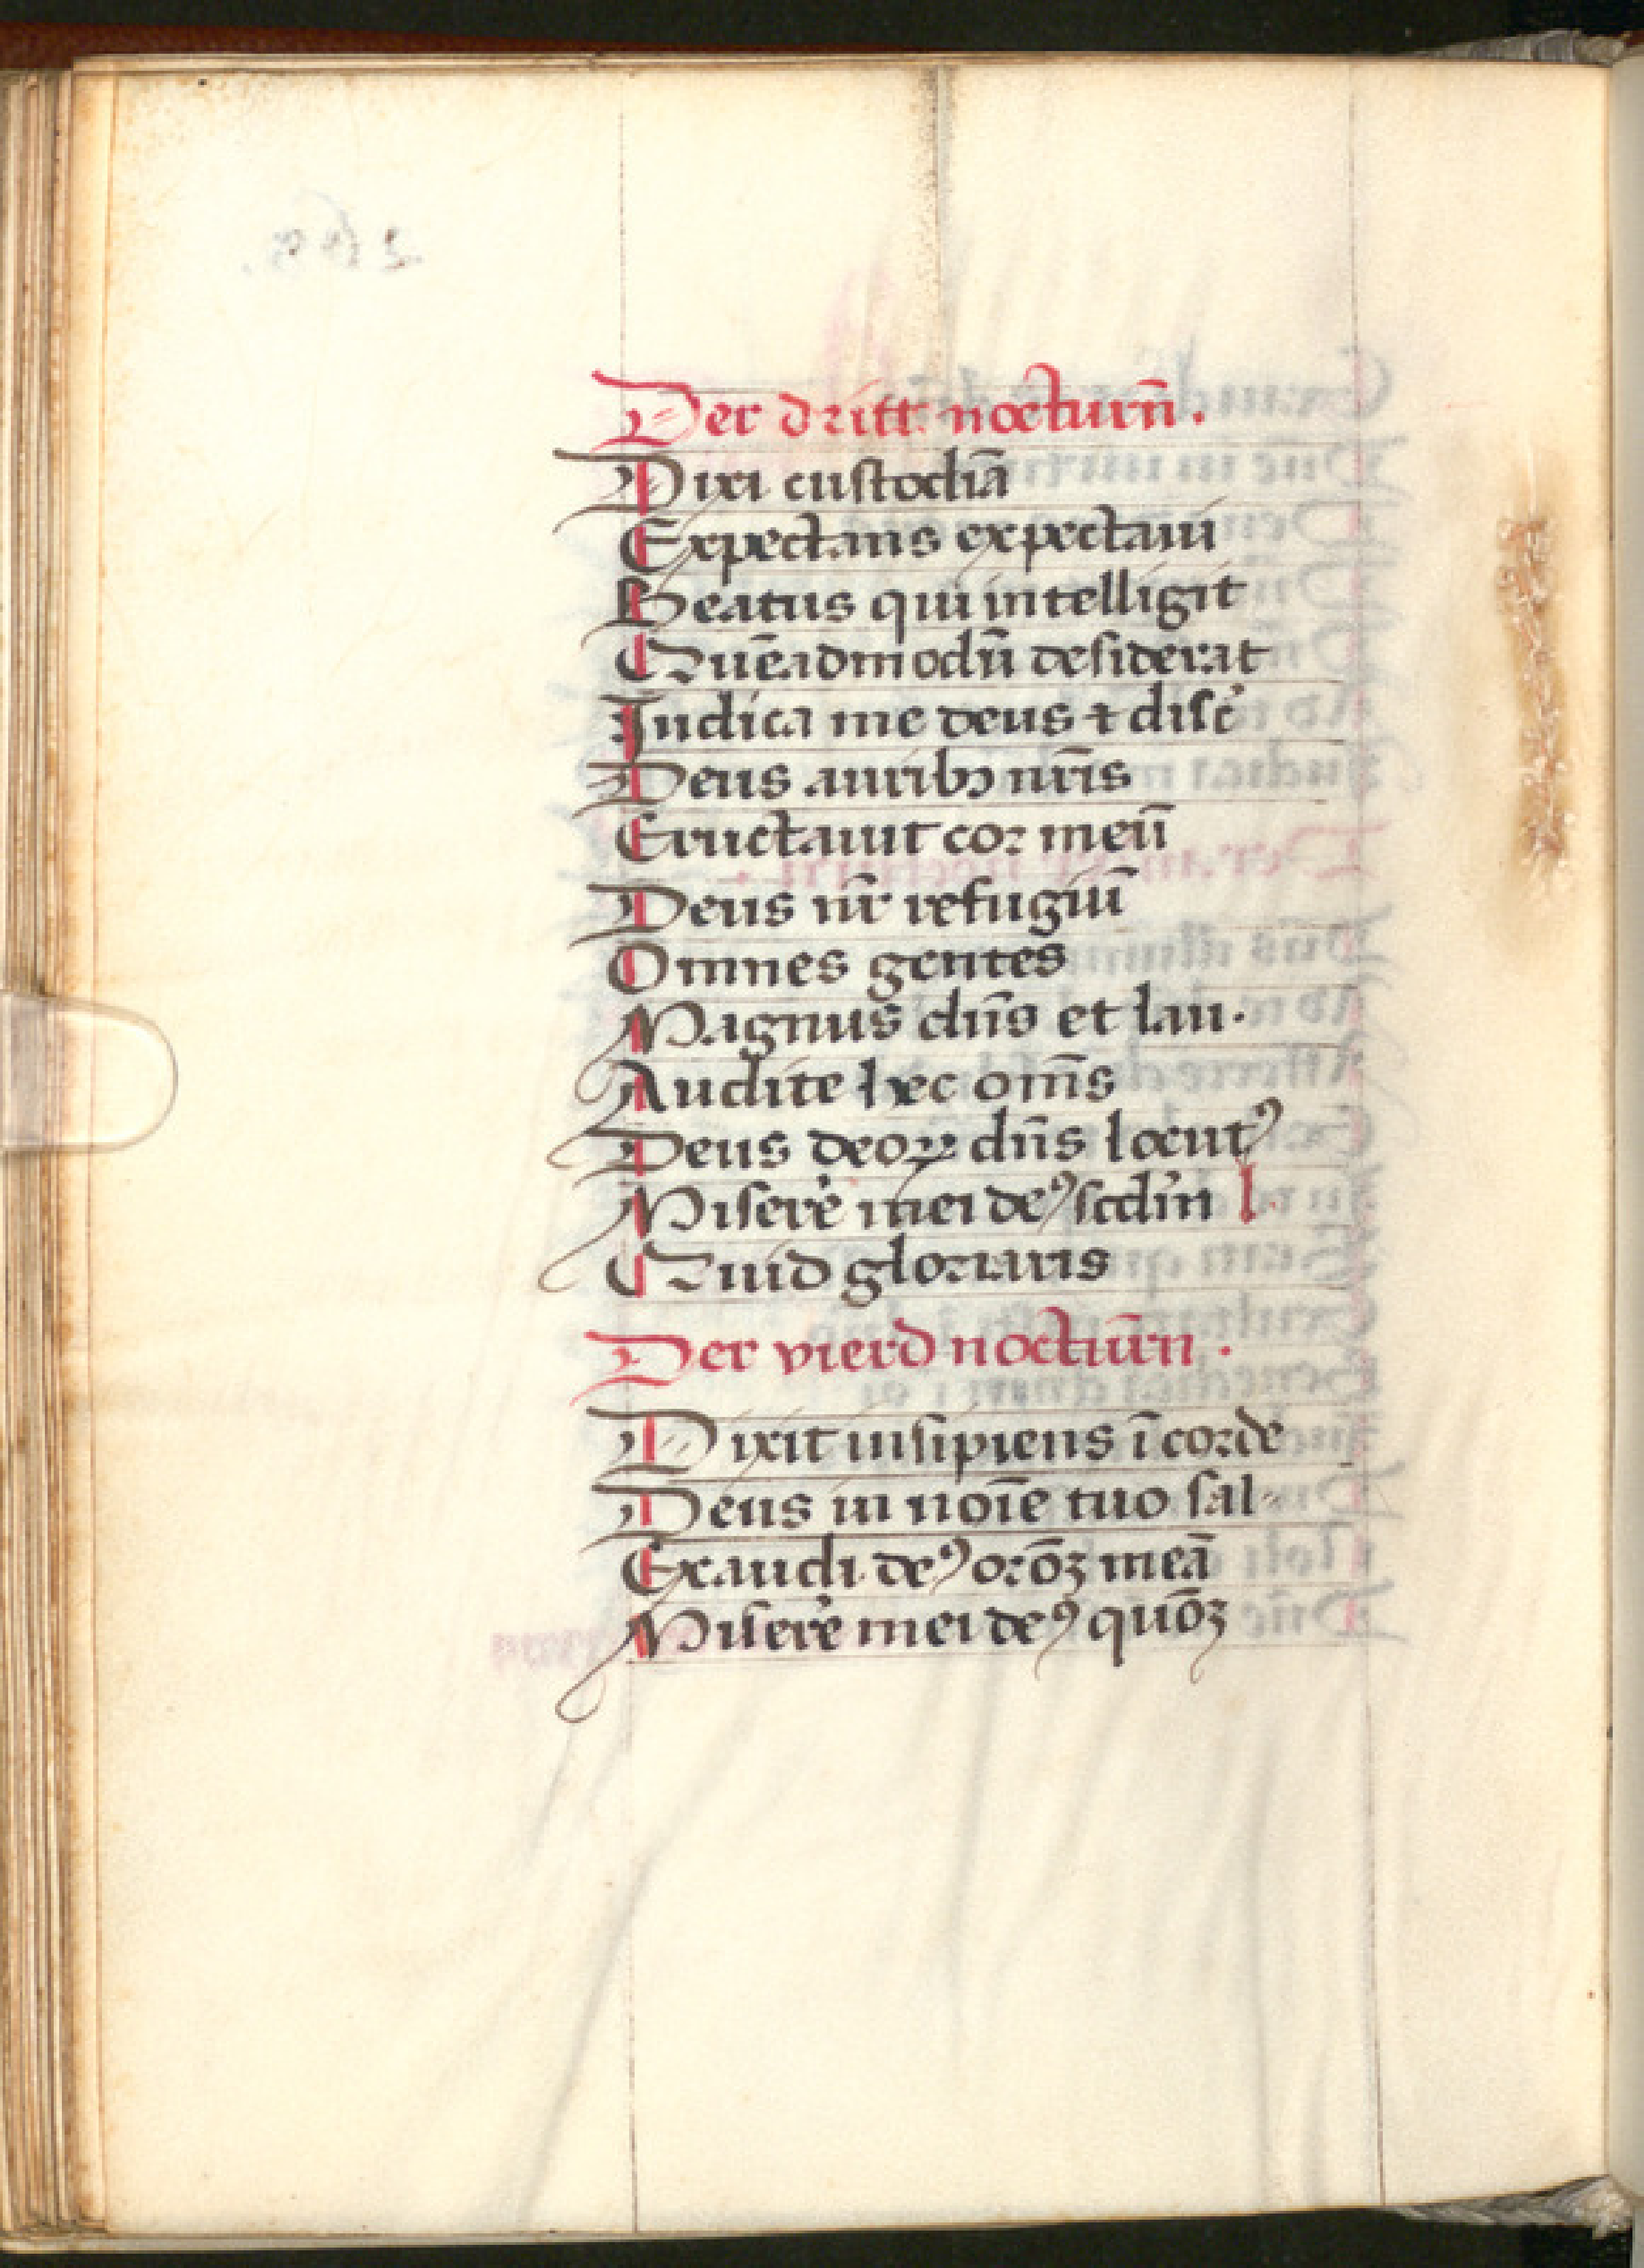 Der dritt nocturn̄.
Dixi custodiā
Expectans expectaui
Beatus qui intelligit
Quēadmodū desiderat
Iudica me deus ⁊ disc̉
Deus aurib⁹ nr̄is
Eructauit cor meū
Deus nr̄ refugiū
Omnes gentes
Magnus dn̄s et lau.
Audite hec om̄s
Deus deoꝝ dn̄s locutꝰ
Miserẻ mei deꝰ scd̉m l.
Quid gloriaris
Der vierd nocturn̄.
Dixit insipiens ī corde
Deus in noīe tuo sal⸗
Exaudi deꝰ orōꝫ meā
Miserẻ mei deꝰ quōꝫ